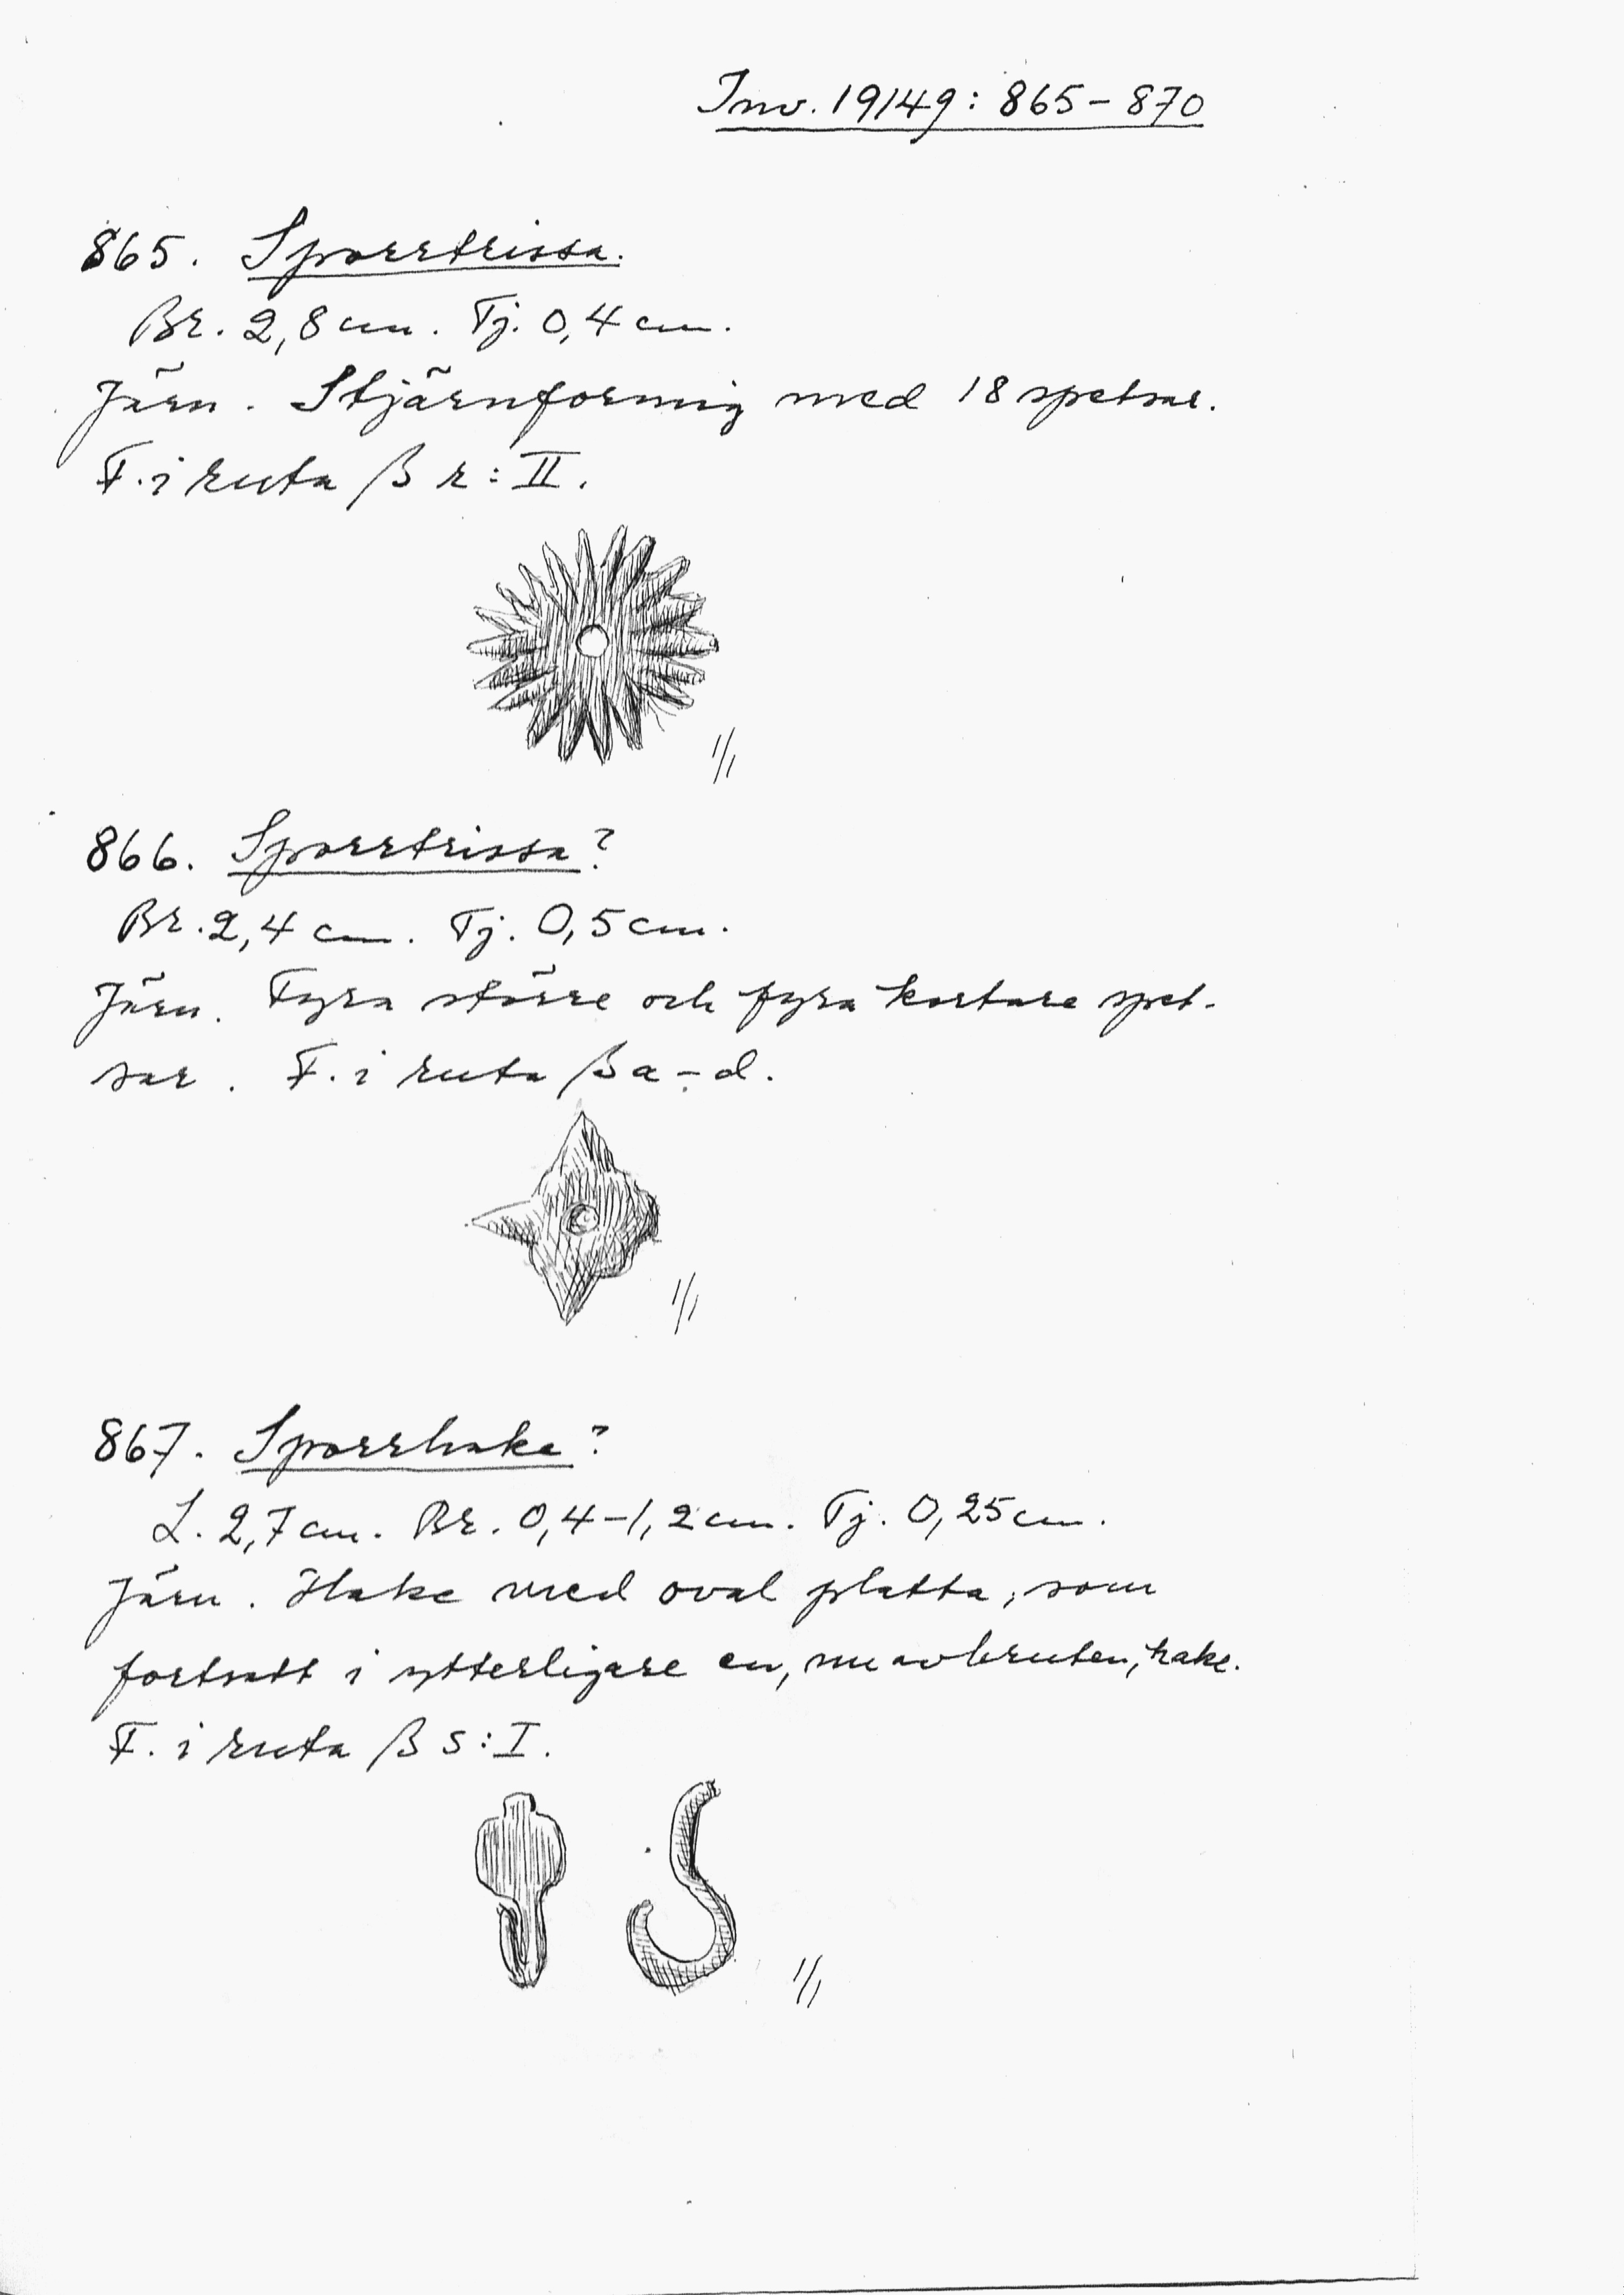 Inv. 19149: 865-870
865. Sporrtrissa.
Br. 2,8 cm. Tj. 0,4 cm.
Järn. Stjärnformig med 18 spetsar.
F. i ruta β r: II.
1/1
866. Sporrtrissa?
Br. 2,4 cm. Tj. 0,5 cm.
Järn. Fyra större och fyra kortare spet-
sar. F. i ruta β a-d.
1/1
867. Sporrhake?
L. 2,7 cm. Br. 0,4-1,2 cm. Tj. 0,25 cm.
Järn. Hake med oval platta, som
fortsatt i ytterligare en, nu avbruten, hake.
F. i ruta β s: I.
1/1